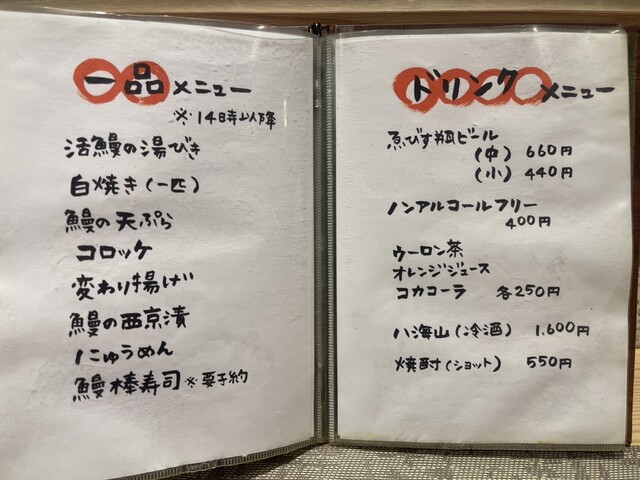 一品メニュー
※14時以降
活鰻の湯びき
白焼き(一匹)
鰻の天ぷら
コロッケ
変わり揚げ
鰻の西京漬
にゅうめん
鰻棒寿司※要予約
ドリンクメニュー
ゑびす瓶ビール
(中) 660円
(小) 440円
ノンアルコールフリー
400円
ウーロン茶
オレンジジュース
コカコーラ 各250円
八海山(冷酒) 1.600円
焼酎(ショット) 550円